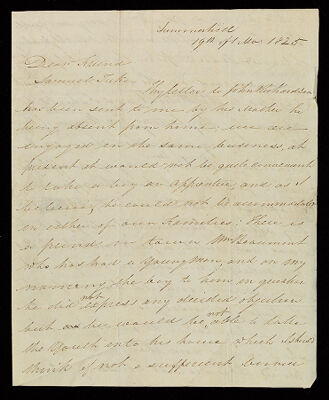 Summerhill
19th of 1 Mo 1825
Dear Friend
Samuel Tuke
Thy letter to John Richardson
has been sent to me by his Mother he
being absent from home. we are
engaged in the same business, at
present it would not be quite convenient
to take a boy an apprentice, and as I
believe, he could not be accommodated
in either of our Families. There is
a friend in town Wm Beaumont
who has had a young man, and on my
naming the boy to him in question
he did not express any decided objection
but he would be not able to take
the Youth into his house which I should
think if not a sufficient